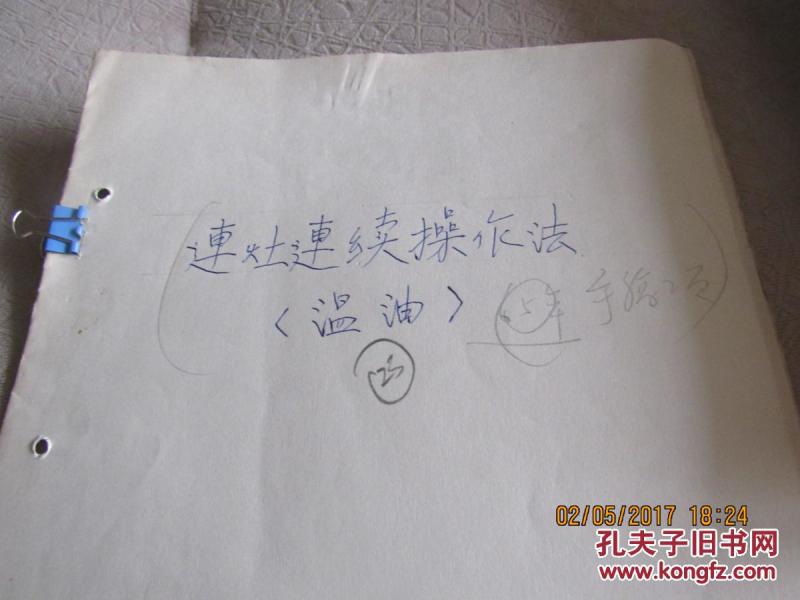 連灶連续操作法
〈温油〉
02/05/2017 18:24
孔夫子旧书网
www.kongfz.com